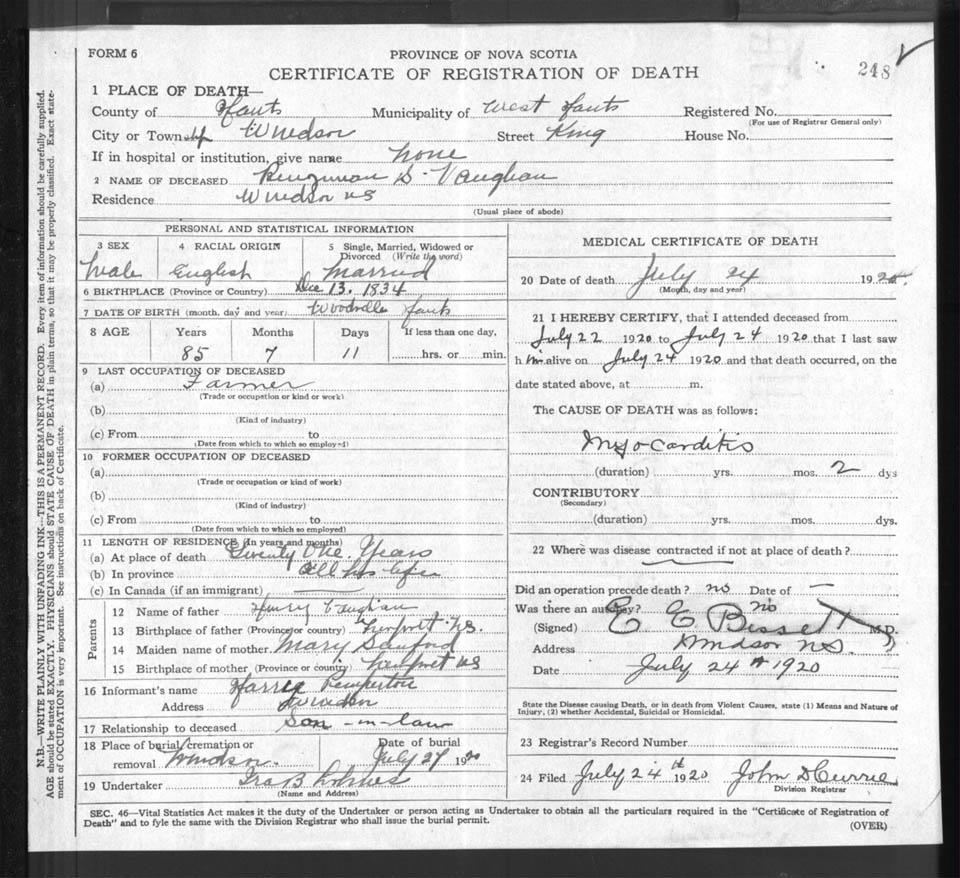 FORM 6
PROVINCE OF NOVA SCOTIA
CERTIFICATE OF REGISTRATION OF DEATH
248
1 PLACE OF DEATH—
County of Hants Municipality of West Hants Registered No.
(For use of Registrar General only)
City or Township Windsor Street King House No.
If in hospital or institution, give name none
2 NAME OF DECEASED S. Vaughan
Residence Windsor NS
(Usual place of abode)
PERSONAL AND STATISTICAL INFORMATION
3 SEX 4 RACIAL ORIGIN 5 Single, Married, Widowed or Divorced (Write the word)
Male English Married
6 BIRTHPLACE (Province or Country) Dec 13. 1834
7 DATE OF BIRTH (month, day and year) Woodville Hants
8 AGE Years Months Days If less than one day,
85 7 11 hrs. or min.
9 LAST OCCUPATION OF DECEASED
(a) Farmer
(Trade or occupation or kind or work)
(b)
(Kind of industry)
(c) From to
(Date from which to which so employed)
10 FORMER OCCUPATION OF DECEASED
(a)
(Trade or occupation or kind of work)
(b)
(Kind of industry)
(c) From to
(Date from which to which so employed)
11 LENGTH OF RESIDENCE (In years and months)
(a) At place of death Twenty One Years
(b) In province All his life
(c) In Canada (if an immigrant)
Parents
12 Name of father Henry Vaughan
13 Birthplace of father (Province or country) NS.
14 Maiden name of mother Mary Sanford
15 Birthplace of mother (Province or country) NS
16 Informant's name Pemperton
Address Windsor
17 Relationship to deceased Son-in-law
18 Place of burial, cremation or removal Windsor. Date of burial July 27 1920
19 Undertaker Ira B
(Name and Address)
MEDICAL CERTIFICATE OF DEATH
20 Date of death July 24 1920.
(Month, day and year)
21 I HEREBY CERTIFY, that I attended deceased from
July 22 1920 to July 24 1920 that I last saw
him alive on July 24 1920 and that death occurred, on the
date stated above, at m.
The CAUSE OF DEATH was as follows:
Myocarditis
(duration) yrs. mos. 2 dys
CONTRIBUTORY
(Secondary)
(duration) yrs. mos. dys.
22 Where was disease contracted if not at place of death?
Did an operation precede death? no Date of —
Was there an autopsy? no
(Signed) E E Bissett M.D.
Address Windsor NS.
Date July 24th 1920
State the Disease causing Death, or in death from Violent Causes, state (1) Means and Nature of
Injury, (2) whether Accidental, Suicidal or Homicidal.
23 Registrar's Record Number
24 Filed July 24th 1920 John D Currie
Division Registrar
SEC. 46—Vital Statistics Act makes it the duty of the Undertaker or person acting as Undertaker to obtain all the particulars required in the "Certificate of Registration of
Death" and to fyle the same with the Division Registrar who shall issue the burial permit.
(OVER)
N.B.—WRITE PLAINLY WITH UNFADING INK—THIS IS A PERMANENT RECORD. Every item of information should be carefully supplied.
AGE should be stated EXACTLY. PHYSICIANS should STATE CAUSE OF DEATH in plain terms, so that it may be properly classified. Exact state-
ment of OCCUPATION is very important. See instructions on back of Certificate.